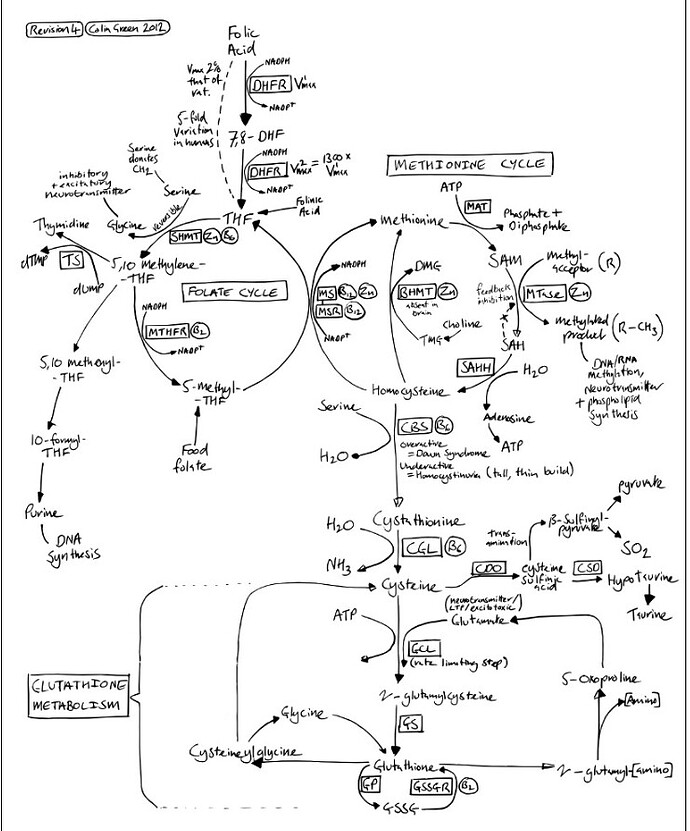 Revision 4
Colin Green 2012
Folic
Acid
Vmax 2%
that of
rat.
5-fold
variation
in humans
NADPH
DHFR
V¹max
NADP+
7,8-DHF
NADPH
DHFR
V²max = 1300 x
V¹max
NADP+
THF
Folinic
Acid
Serine
donates
CH2
Serine
inhibitory
+ excitatory
neurotransmitter
Glycine
reversible
SHMT
Zn
B6
Thymidine
dTMP
TS
dUMP
5,10 Methylene-
-THF
FOLATE CYCLE
NADPH
MTHFR
B2
NADP+
5,10 methenyl-
-THF
10-formyl-
THF
Purine
DNA
Synthesis
5-methyl-
-THF
Food
folate
METHIONINE CYCLE
Methionine
ATP
MAT
Phosphate +
Diphosphate
SAM
methyl-
acceptor (R)
feedback
inhibition
MTase
Zn
methylated
product (R-CH3)
DNA/RNA
Methylation,
Neurotransmitter
+ phospholipid
Synthesis
SAH
SAHH
H2O
Adenosine
ATP
NADPH
MS
B12
Zn
MSR
B12
NADP+
DMG
BHMT
Zn
absent in
brain
TMG
Choline
Homocysteine
Serine
H2O
CBS
B6
overactive
= Down Syndrome
Underactive
= Homocystinuria (tall, thin build)
Cystathionine
H2O
CGL
B6
NH3
Cysteine
CDO
cysteine
sulfinic
acid
trans-
amination
β-Sulfinyl-
pyruvate
pyruvate
SO2
CSD
HypoTaurine
Taurine
GLUTATHIONE
METABOLISM
ATP
GCL
(rate limiting step)
(neurotransmitter/
LTP/excitotoxic)
Glutamate
5-Oxoproline
[Amino]
γ-glutamylcysteine
GS
Glycine
Cysteineylglycine
Glutathione
γ-glutamyl-[amino]
GP
GSSGR
B2
GSSG